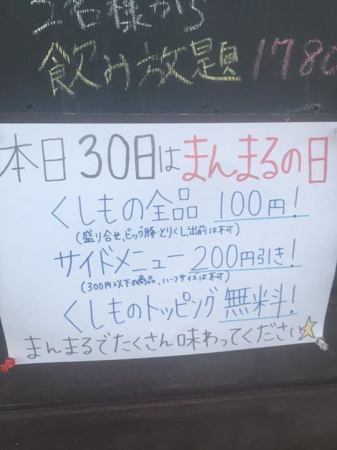 2名様から
飲み放題 1780
本日30日はまんまるの日
くしもの全品 100円!
(盛り合せ、ビッグ豚・とりくし、出前は不可)
サイドメニュー 200円引き!
(300円以下の商品、ハーフサイズは不可)
くしものトッピング 無料!
まんまるでたくさん味わってください☆